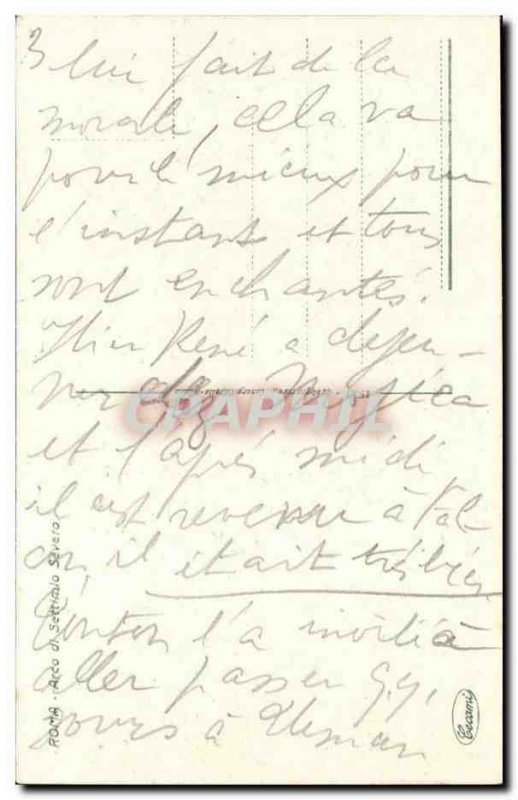 3 lui fait de la
morale, cela va
pour le mieux pour
l'instant et tous
sont enchantés.
Hier René a dejeu-
ner
et l'après midi
il est revenu à Pal
où il était très bien
l'a invité à
aller passer q.q.
jours à
ROMA - Arco di Settimio Severo
CPAPHIL
Cecami